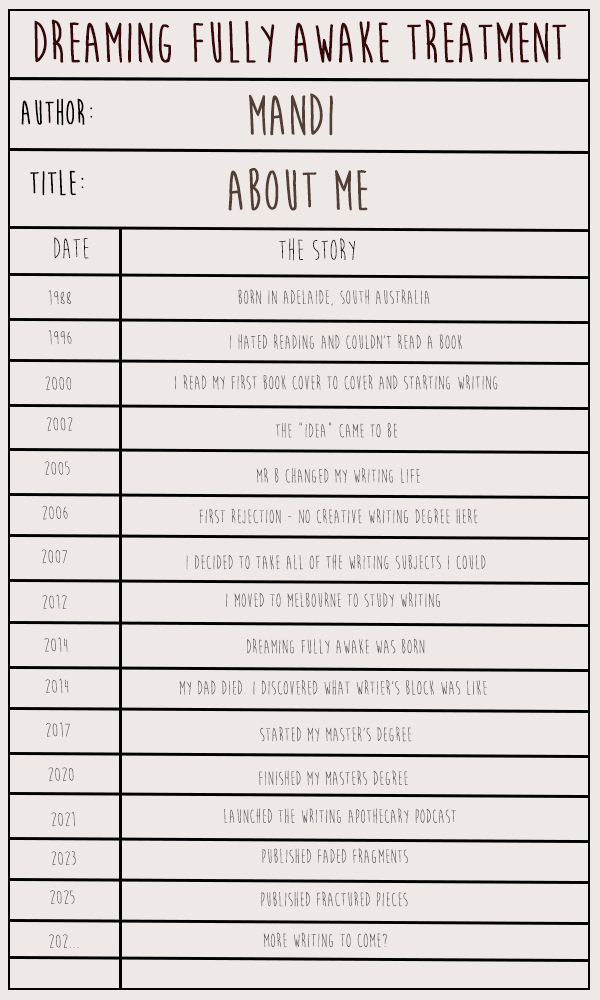 DREAMING FULLY AWAKE TREATMENT
AUTHOR: MANDI
TITLE: ABOUT ME
DATE THE STORY
1988 BORN IN ADELAIDE, SOUTH AUSTRALIA
1996 I HATED READING AND COULDN'T READ A BOOK
2000 I READ MY FIRST BOOK COVER TO COVER AND STARTING WRITING
2002 THE "IDEA" CAME TO BE
2005 MR B CHANGED MY WRITING LIFE
2006 FIRST REJECTION - NO CREATIVE WRITING DEGREE HERE
2007 I DECIDED TO TAKE ALL OF THE WRITING SUBJECTS I COULD
2012 I MOVED TO MELBOURNE TO STUDY WRITING
2014 DREAMING FULLY AWAKE WAS BORN
2014 MY DAD DIED. I DISCOVERED WHAT WRTIER'S BLOCK WAS LIKE
2017 STARTED MY MASTER'S DEGREE
2020 FINISHED MY MASTERS DEGREE
2021 LAUNCHED THE WRITING APOTHECARY PODCAST
2023 PUBLISHED FADED FRAGMENTS
2025 PUBLISHED FRACTURED PIECES
202... MORE WRITING TO COME?